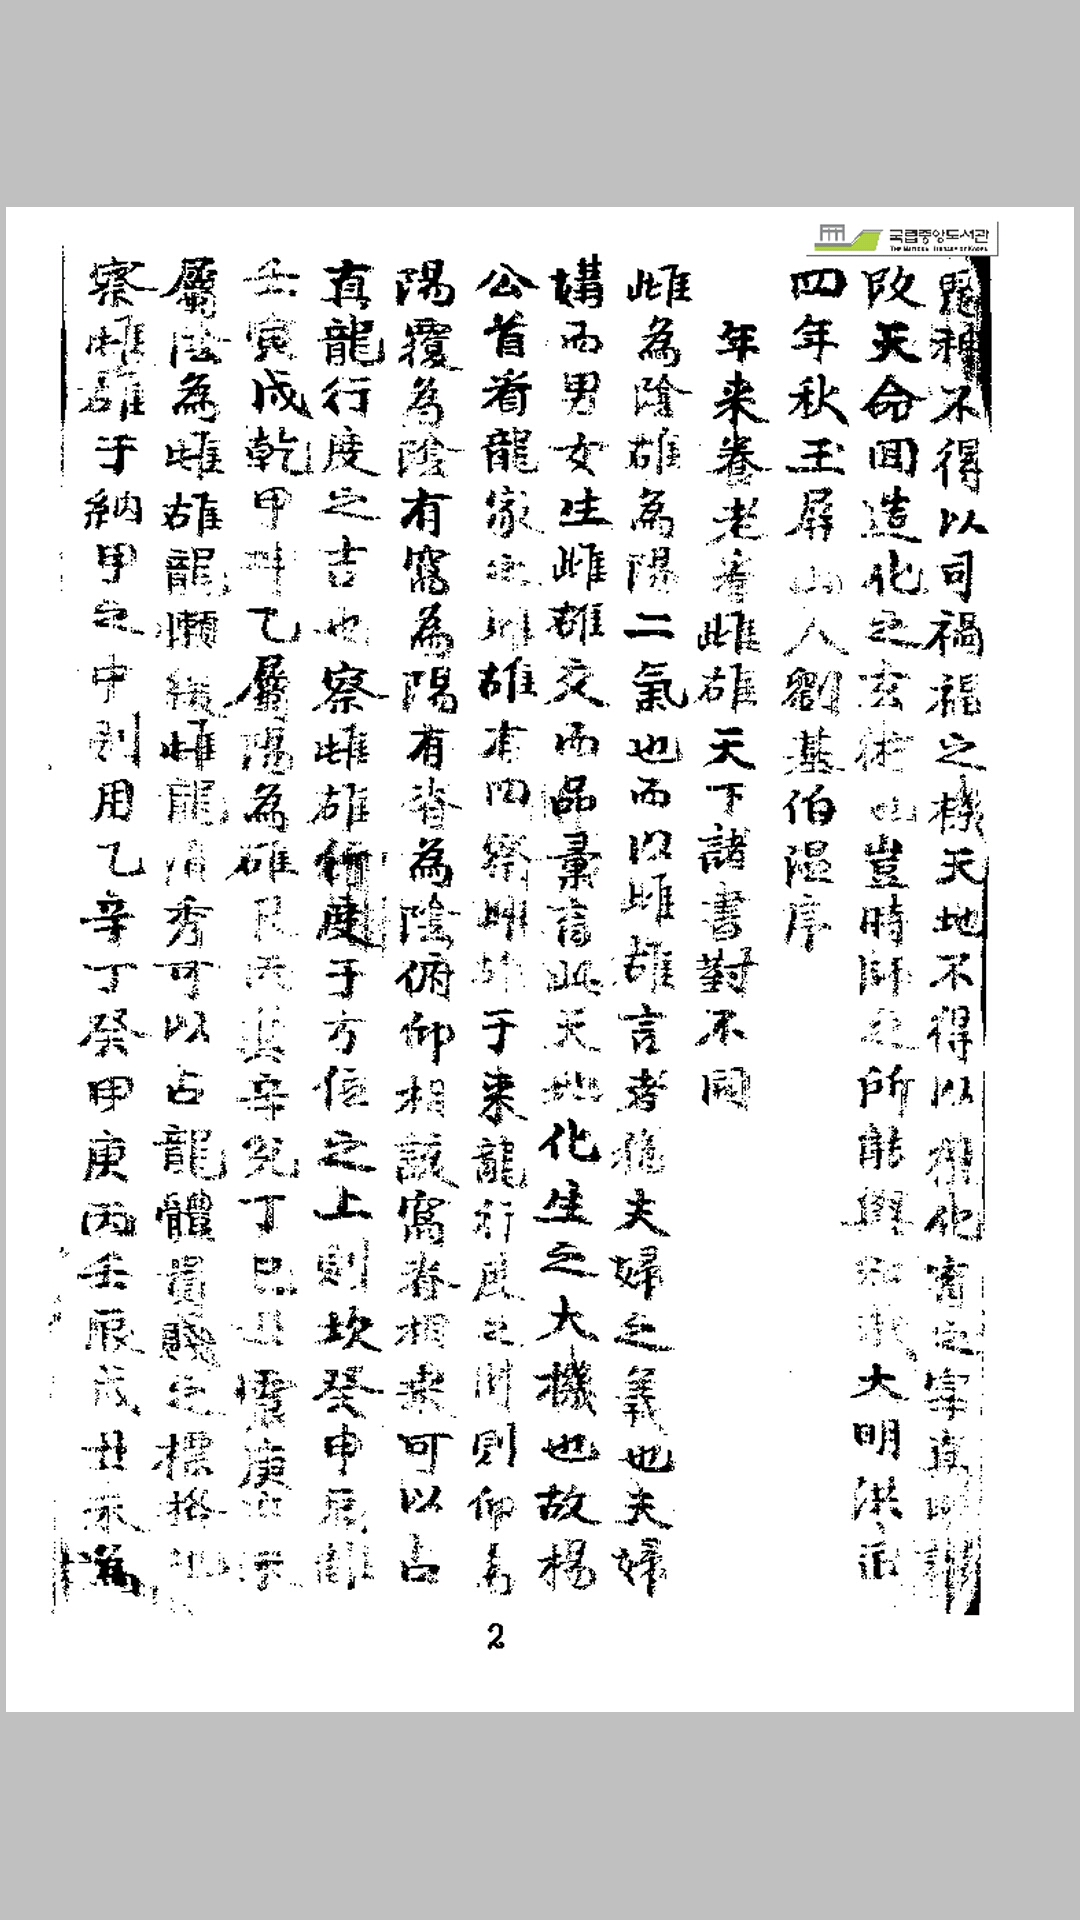 국립중앙도서관
THE NATIONAL LIBRARY OF KOREA
鬼神不得以司禍福之機天地不得以 化 之 真
改天命回造化之玄 也豈時師之所能與 大明洪武
四年秋玉屏山人劉基伯溫序
年来養老看雌雄天下諸書對不同
雌為陰雄為陽二氣也而以雌雄言者猶夫婦之義也夫婦
媾而男女生雌雄交而品彙育此天地化生之大機也故楊
公首看龍家之雌雄有四察雌雄于来龍行度之間則仰為
陽覆為陰有窩為陽有脊為陰俯仰相該窩脊相乘可以占
真龍行度之吉也察雌雄行度于方位之上則坎癸申辰離
壬寅戌乾甲 乙屬陽為雄艮丙巽辛兌丁巳丑震庚亥未
屬陰為雌雄龍懶緩雌龍清秀可以占龍體貴賤之標格也
察雌雄于納甲之中則用乙辛丁癸甲庚丙壬辰戌丑未為
2